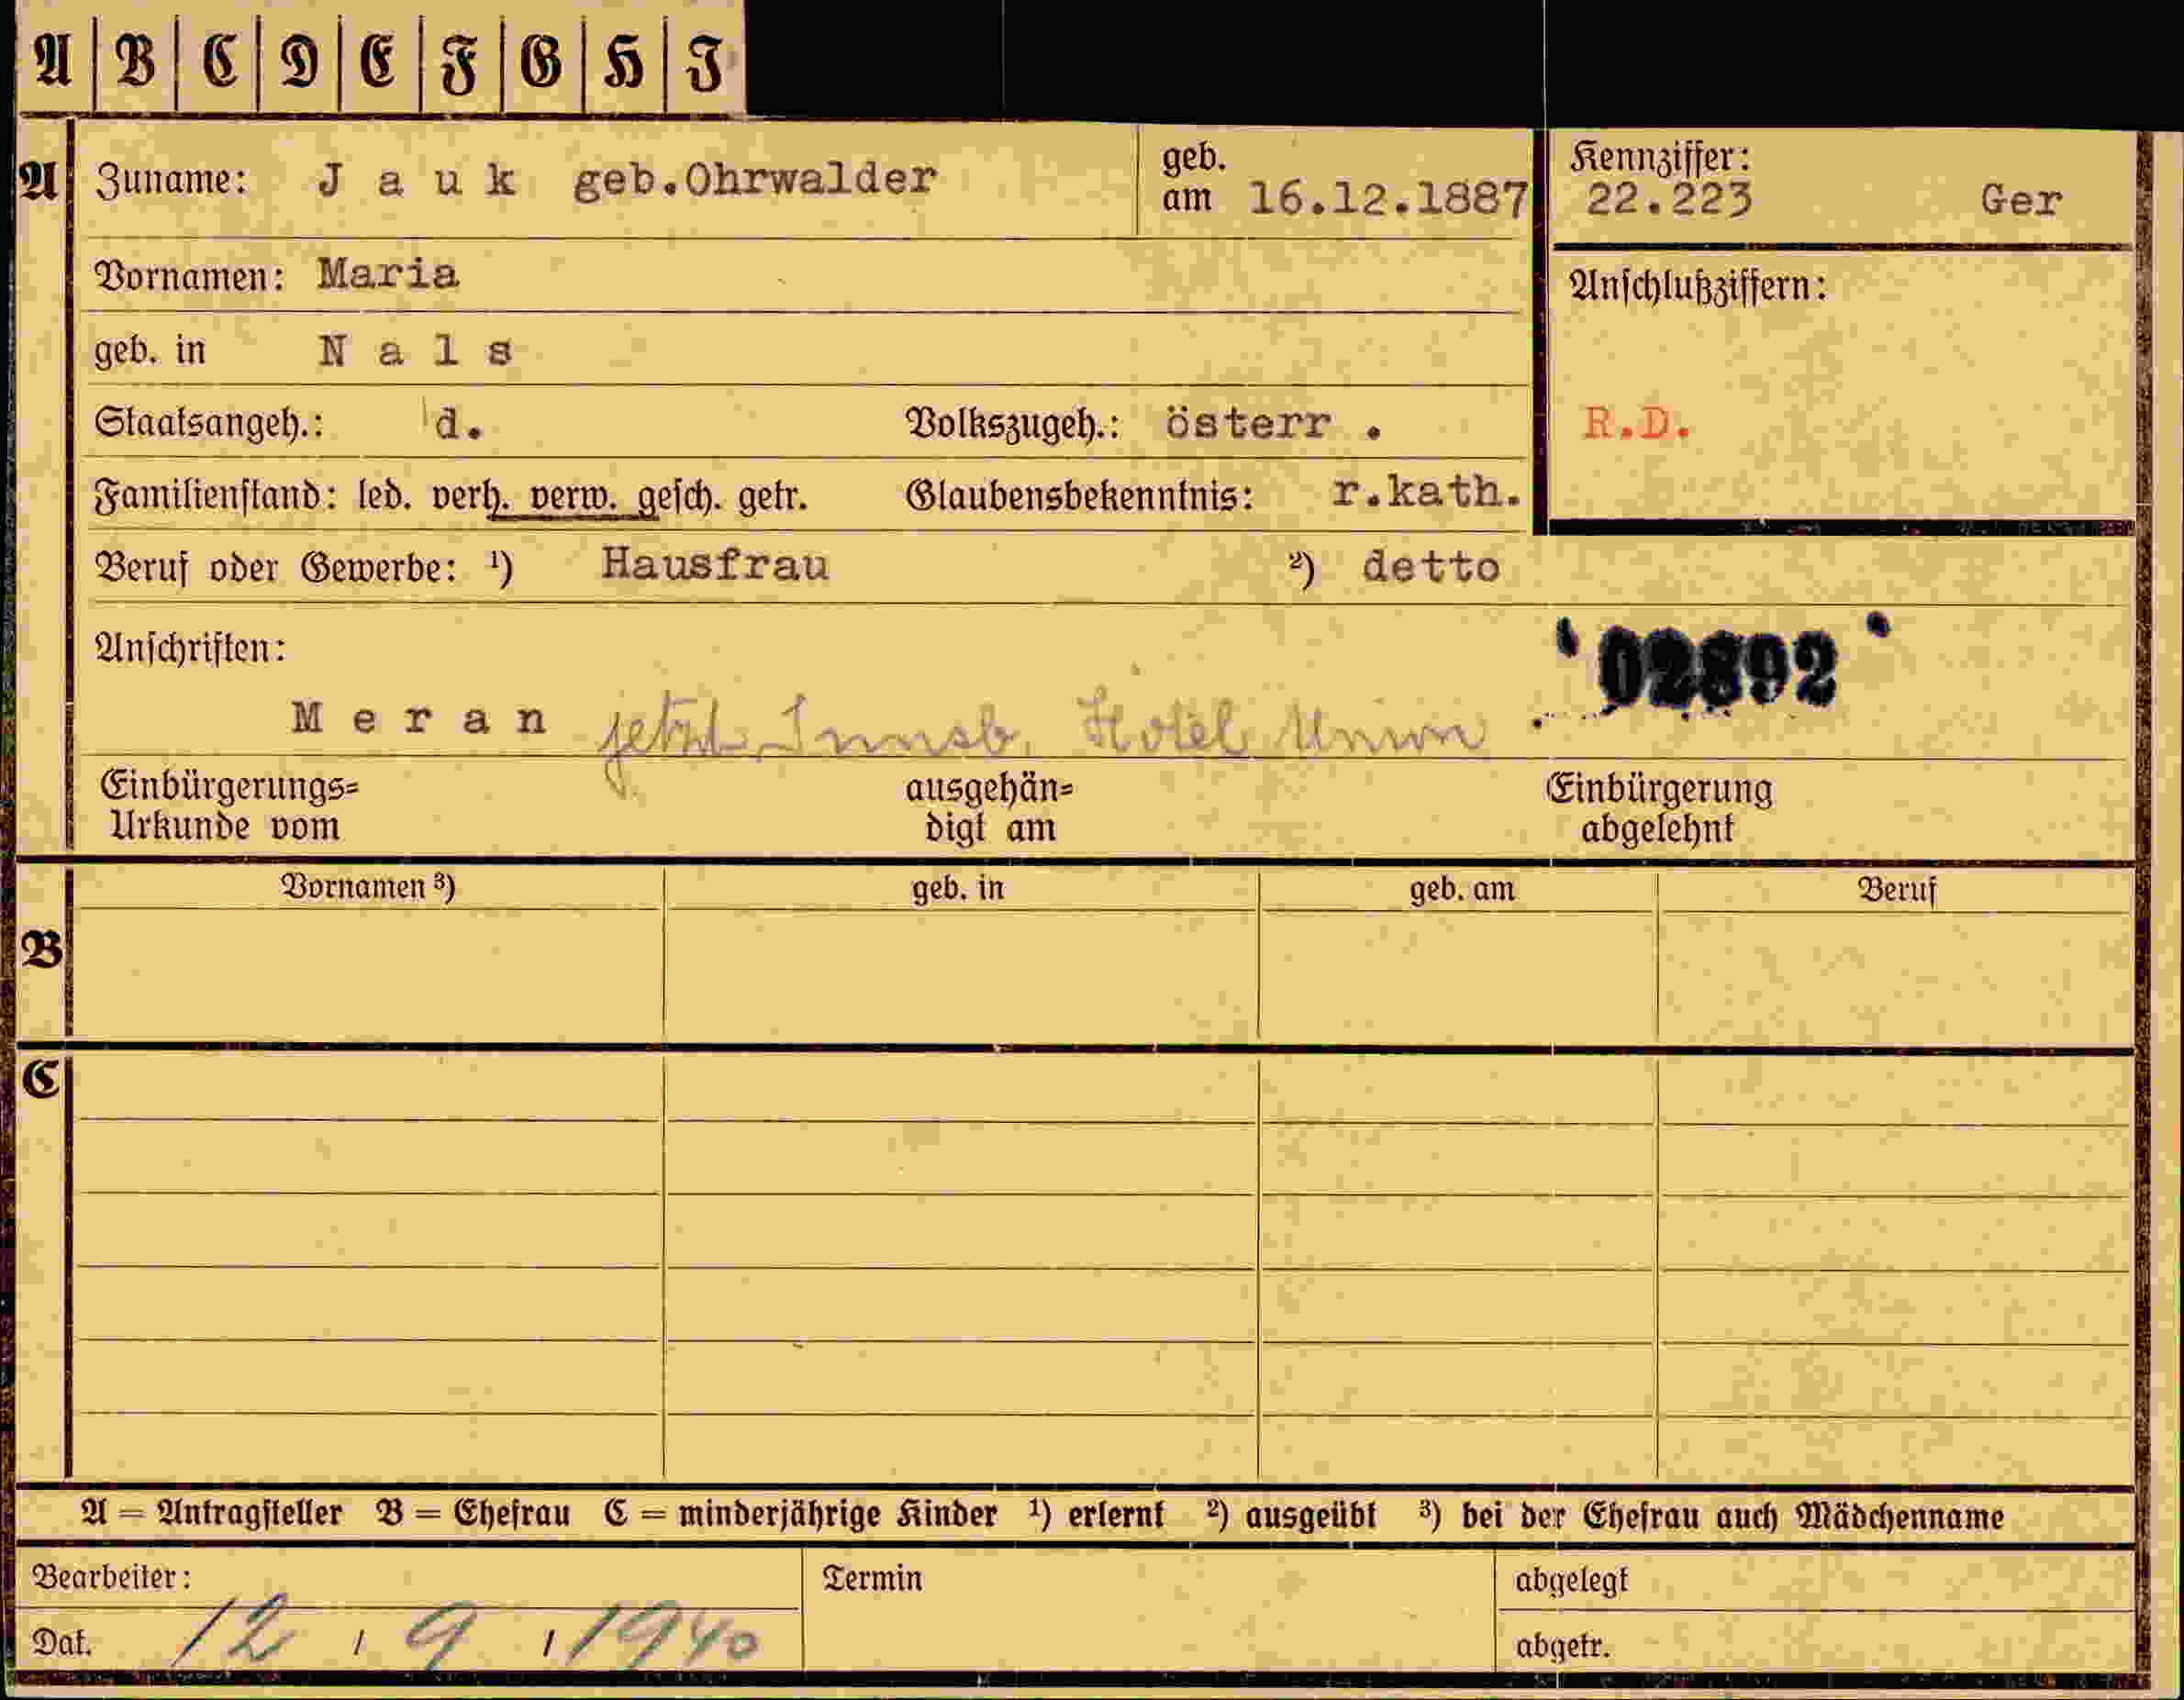 A B C D E F G H I
A Zuname: J a u k geb.Ohrwalder geb. am 16.12.1887 Kennziffer: 22.223 Ger
Vornamen: Maria Anschlußziffern:
geb. in N a l s
Staatsangeh.: d. Volkszugeh.: österr . R.D.
Familienstand: led. verh. verw. gesch. getr. Glaubensbekenntnis: r.kath.
Beruf oder Gewerbe: ¹) Hausfrau ²) detto
Anschriften: 02892
M e r a n jetzt Innsb. Hotel Union
Einbürgerungs= ausgehän= Einbürgerung
Urkunde vom digt am abgelehnt
Vornamen ³) geb. in geb. am Beruf
B
C
A = Antragsteller B = Ehefrau C = minderjährige Kinder ¹) erlernt ²) ausgeübt ³) bei der Ehefrau auch Mädchenname
Bearbeiter: Termin abgelegt
Dat. 12 / 9 / 1940 abgetr.